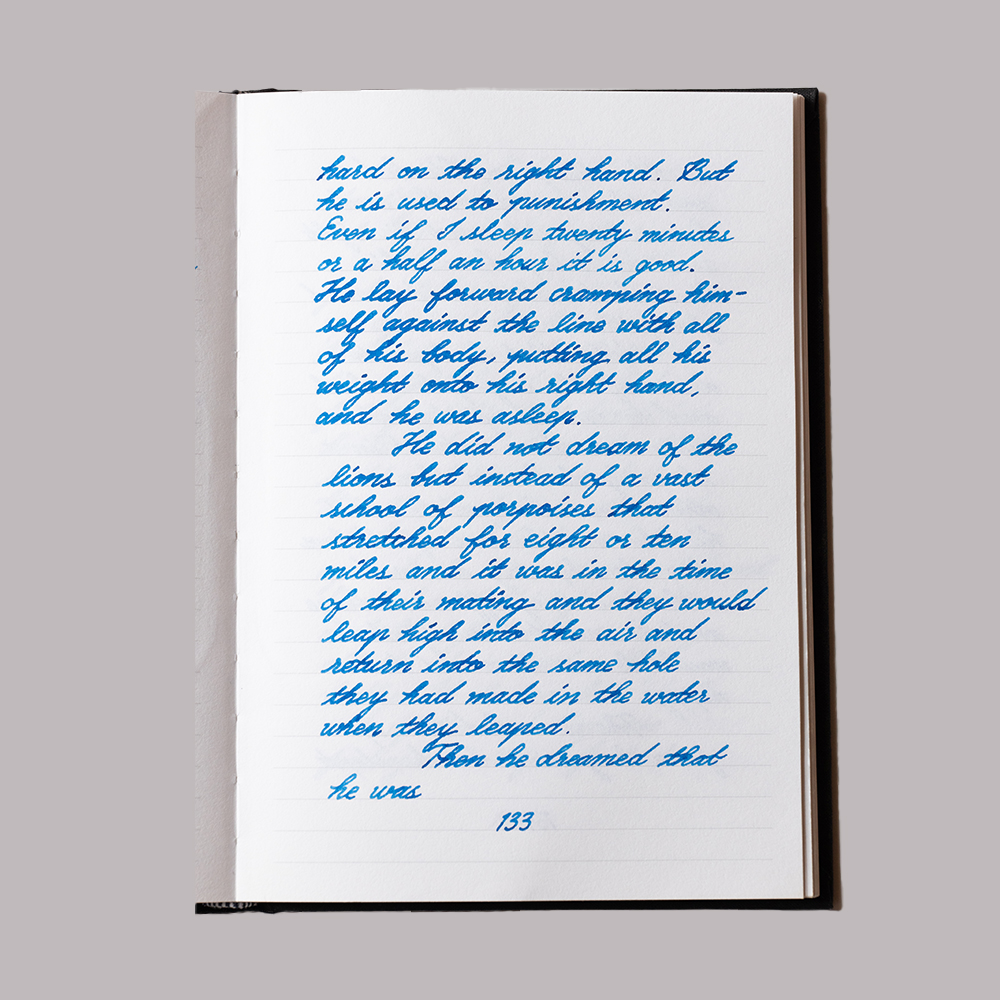 hard on the right hand. But
he is used to punishment.
Even if I sleep twenty minutes
or a half an hour it is good.
He lay forward cramping him-
self against the line with all
of his body, putting all his
weight onto his right hand,
and he was asleep.
He did not dream of the
lions but instead of a vast
school of porpoises that
stretched for eight or ten
miles and it was in the time
of their mating and they would
leap high into the air and
return into the same hole
they had made in the water
when they leaped.
Then he dreamed that
he was
133